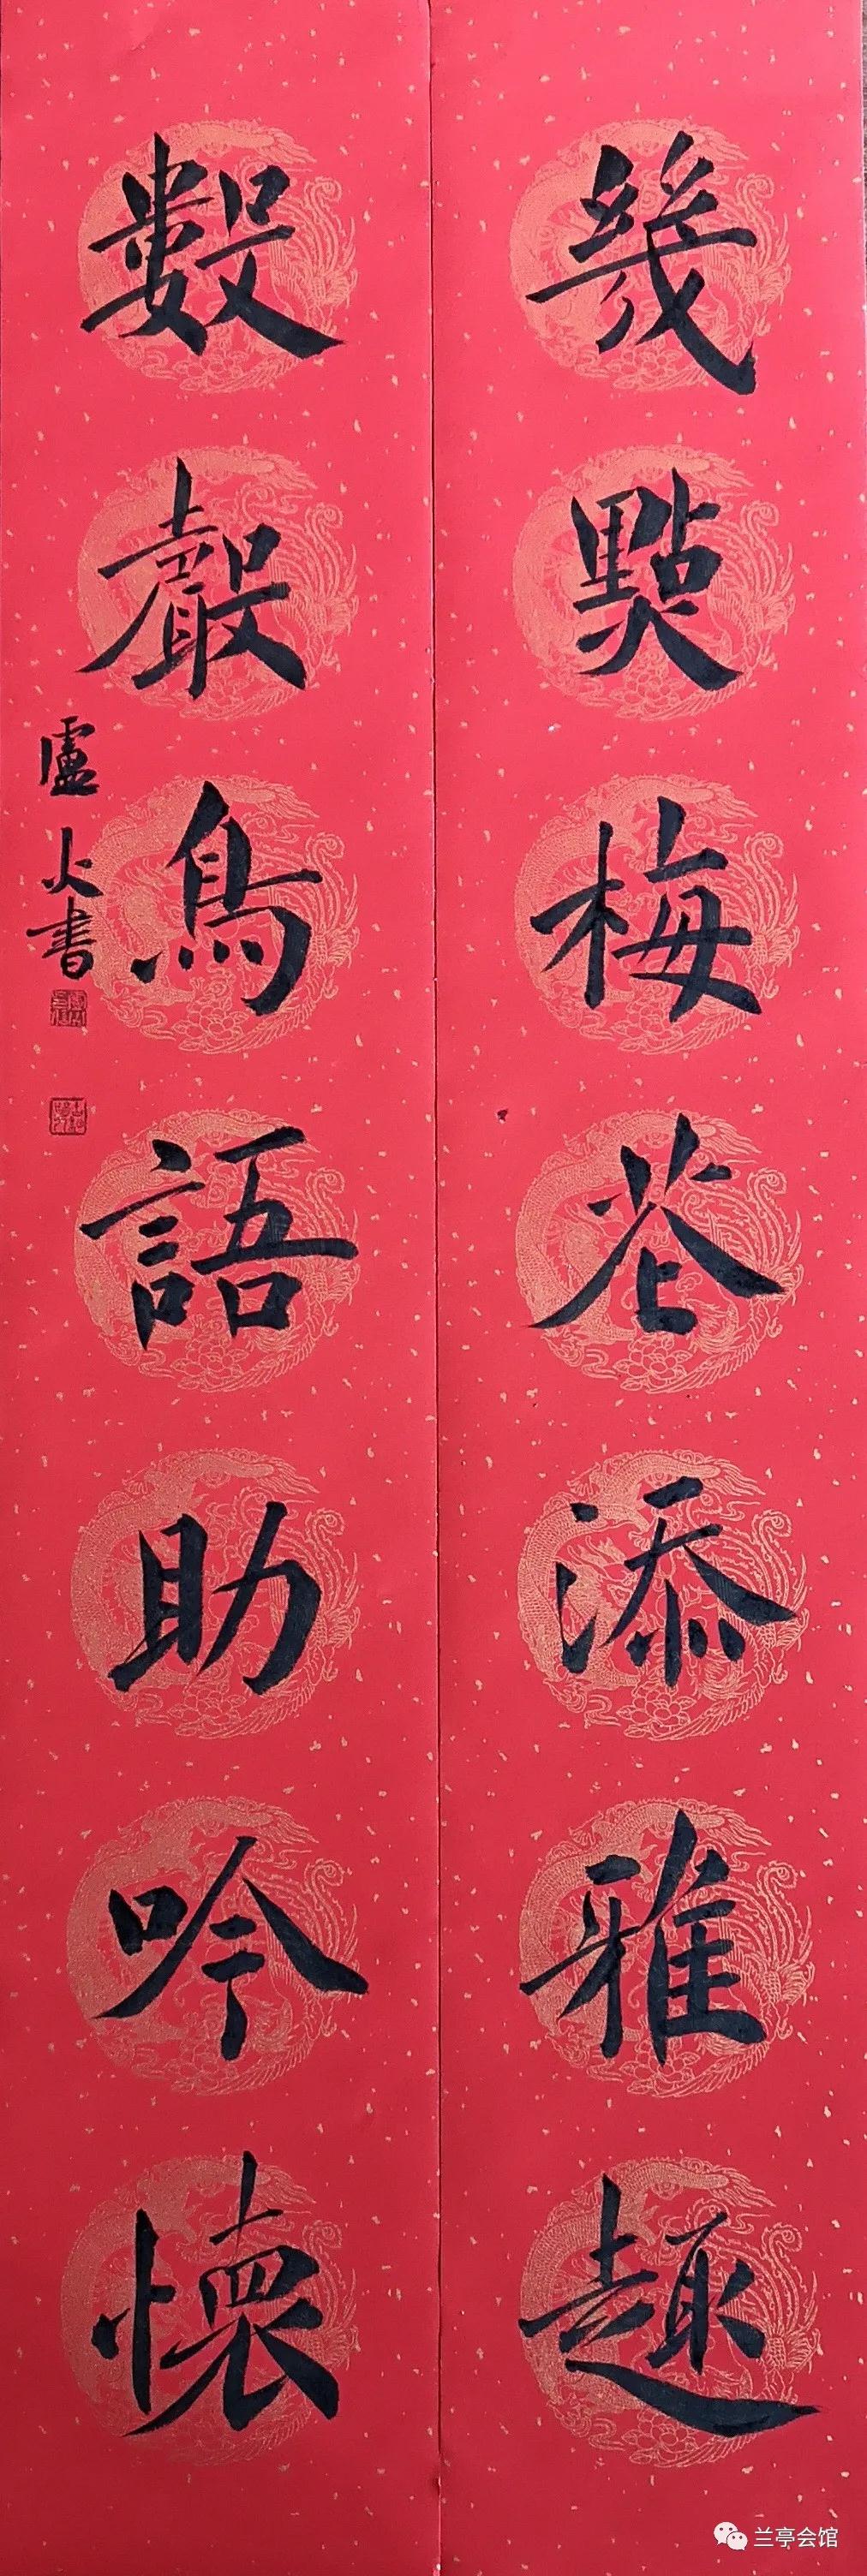 幾點梅花添雅趣
數聲鳥語助吟懷
盧火書
兰亭会馆